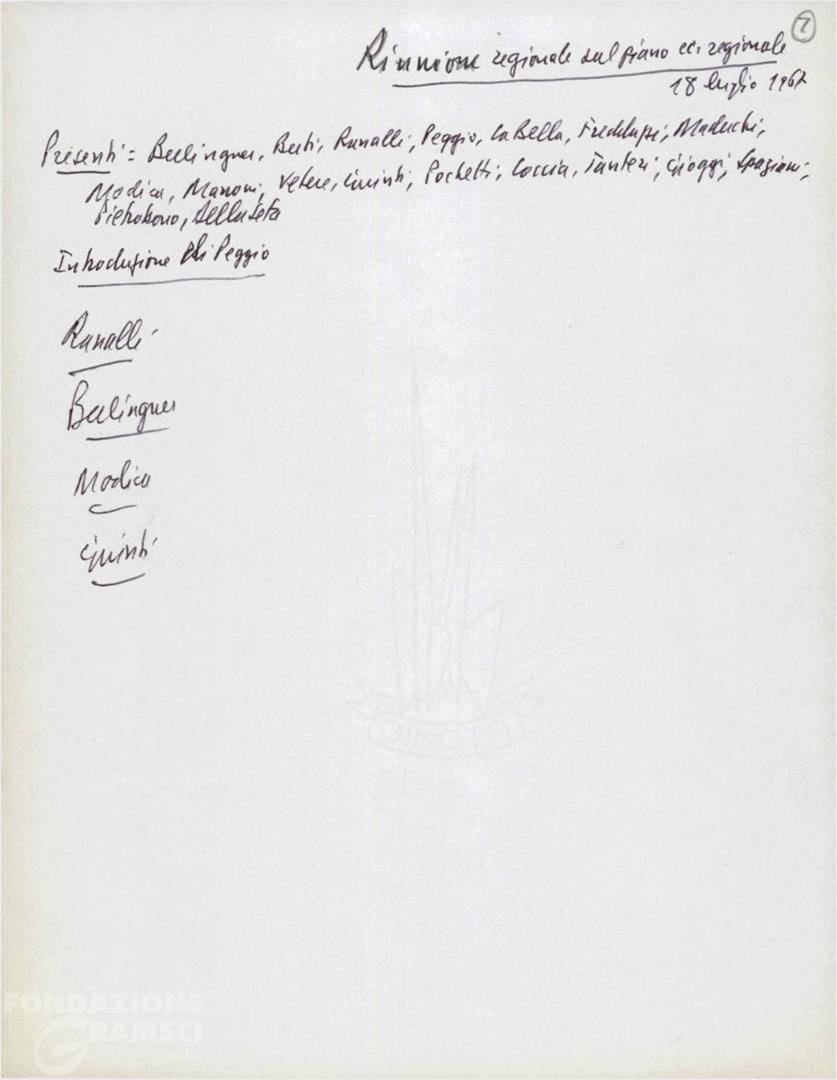 7
Riunione regionale sul piano ec. regionale
18 luglio 1967
Presenti = Berlinguer, Berti, Ranalli, Peggio, La Bella, Freddupi, Maduchi,
Modica, Manoni, Vetere, Quinti, Pochetti, Coccia, Fanteri, Spaziani,
Pietrobono, Della Seta
Introduzione di Peggio
Ranalli
Berlinguer
Modica
Quinti
FONDAZIONE
GRAMSCI